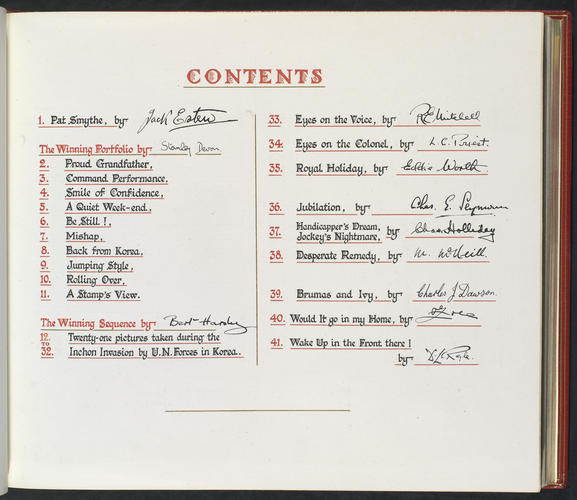 CONTENTS
1. Pat Smythe, by Jack Esten
The Winning Portfolio by Stanley Devon
2. Proud Grandfather,
3. Command Performance,
4. Smile of Confidence,
5. A Quiet Week-end,
6. Be Still!,
7. Mishap,
8. Back from Korea,
9. Jumping Style,
10. Rolling Over,
11. A Stamp's View.
The Winning Sequence by Bert Hardy
12. Twenty-one pictures taken during the
TO
32. Inchon Invasion by U.N. Forces in Korea..
33. Eyes on the Voice, by Mitchell
34. Eyes on the Colonel, by L.C. Priest.
35. Royal Holiday, by Eddie Worth
36. Jubilation, by Chas. E. Seymour
37. Handicapper's Dream,
Jockey's Nightmare, by Chas Holliday
38. Desperate Remedy, by M. McNeill.
39. Brumas and Ivy, by Charles J Dawson.
40. Would It go in my Home, by
41. Wake Up in the Front there!
by